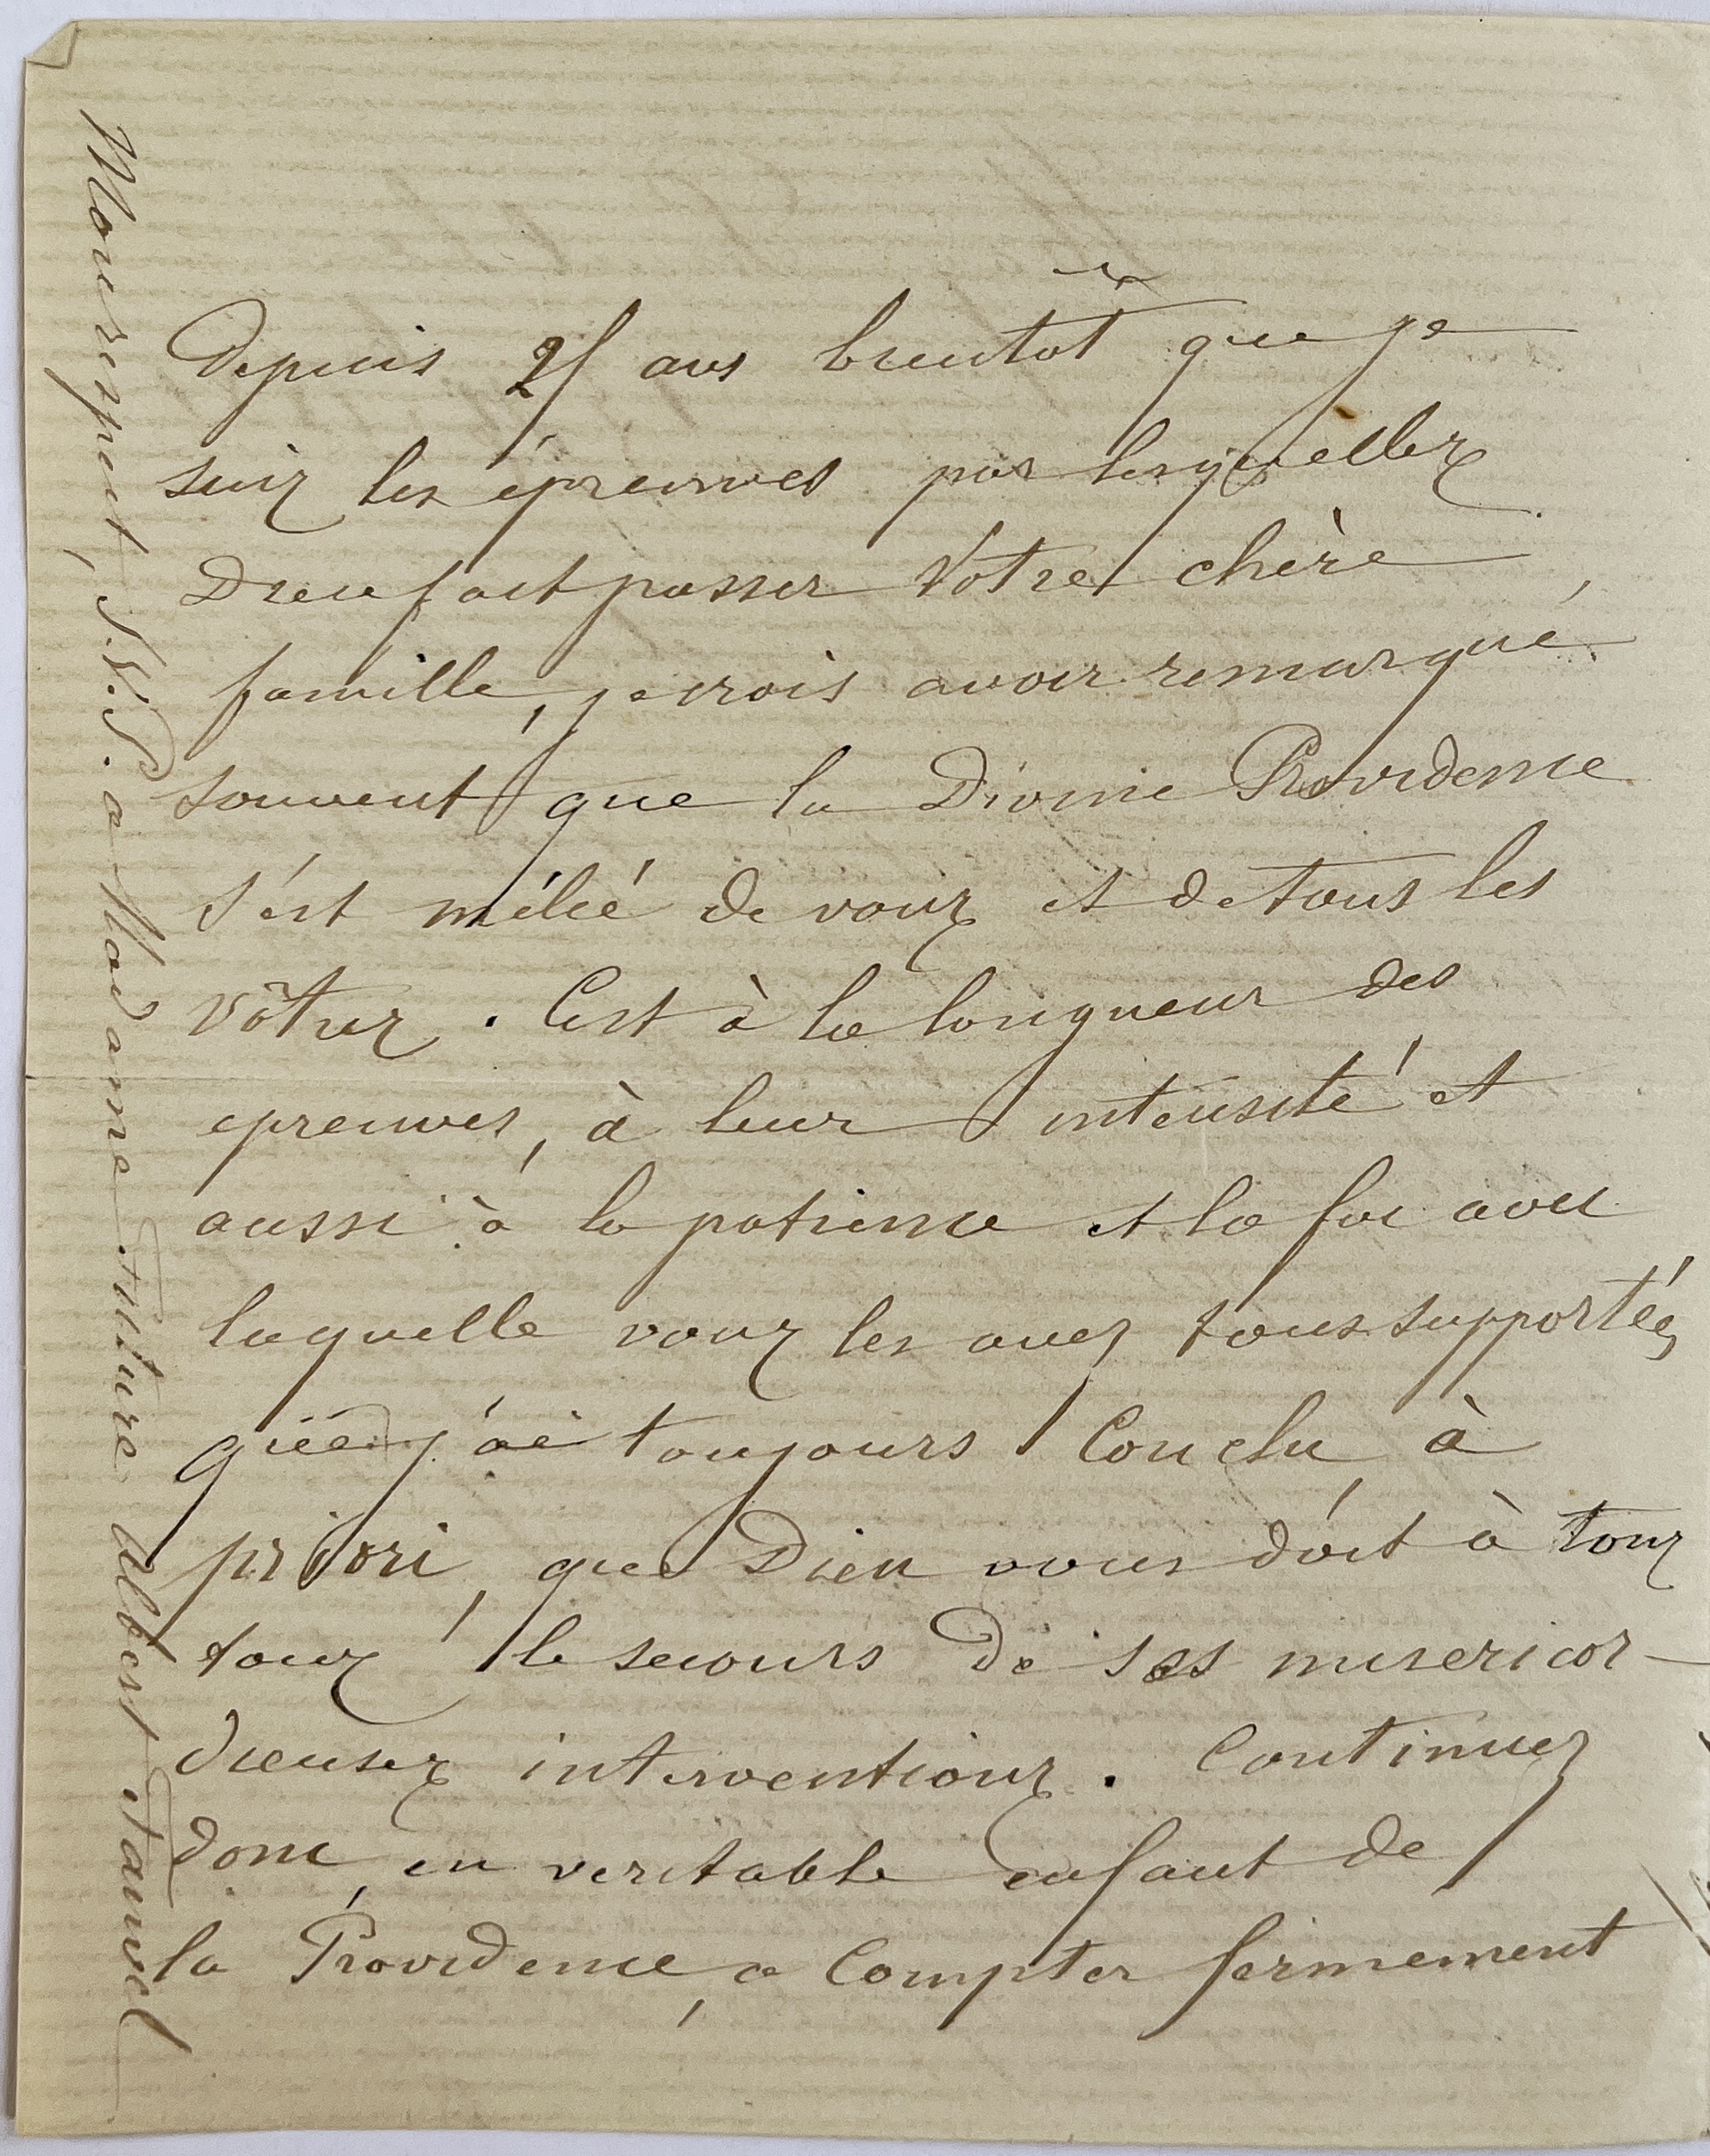 Depuis 25 ans bientôt que je
suis les épreuves par lesquelles
Dieu fait passer Votre chère
famille, je crois avoir remarqué
souvent que la Divine Providence
s'est mêlée de vous et de tous les
vôtres. C'est à la longueur des
epreuves, à leur intensité et
aussi à la patience et la foi avec
laquelle vous les avez tous supportées
que j'ai toujours Conclu à
priori, que Dieu vous doit à tous
tous le secours de ses misericor-
dieuses interventions. Continuez
donc, en veritable enfant de
la Providence, a Compter fermement
Mon respect, S.V.P. a Madame future Albert